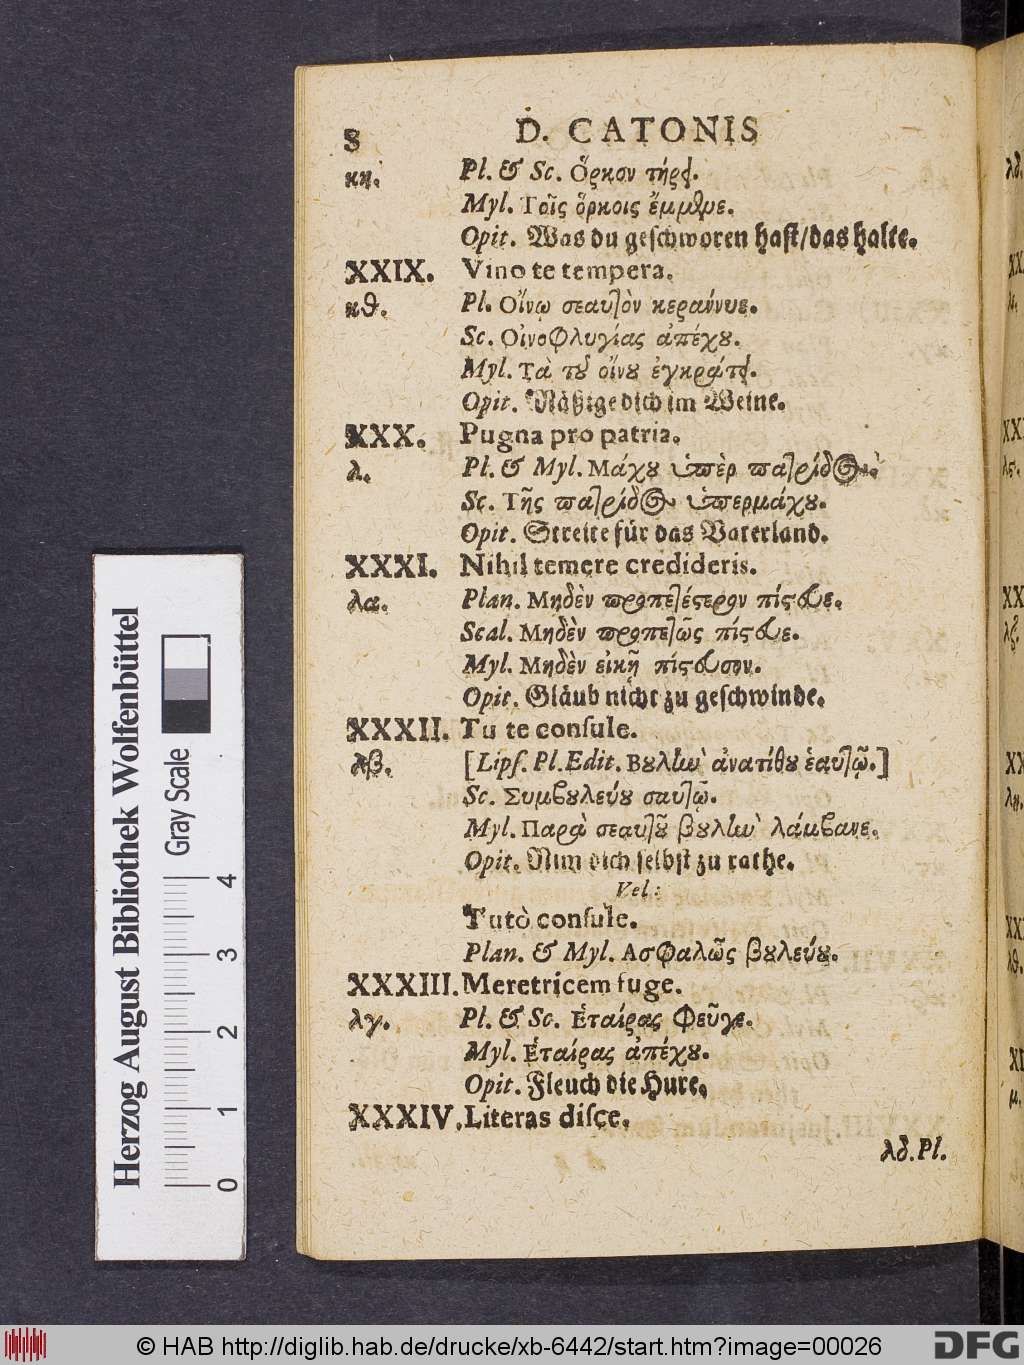 8 D. CATONIS
κη. Pl. & Sc. Ὅρκον τήρει.
Myl. Τοῖς ὅρκοις ἔμμενε.
Opit. Was du geschworen hast/das halte.
XXIX. Vino te tempera.
κθ. Pl. Οἴνῳ σεαυτὸν κεράννυε.
Sc. Οἰνοφλυγίας ἀπέχου.
Myl. Τὰ τοῦ οἴνου ἐγκράτει.
Opit. Mäßige dich im Weine.
XXX. Pugna pro patria.
λ. Pl. & Myl. Μάχου ὑπὲρ πατρίδος.
Sc. Τῆς πατρίδος ὑπερμάχου.
Opit. Streite für das Vaterland.
XXXI. Nihil temere credideris.
λα. Plan. Μηδὲν προπετέστερον πίστευε.
Scal. Μηδὲν προπετῶς πίστευε.
Myl. Μηδὲν εἰκῆ πίστευσον.
Opit. Gläub nicht zu geschwinde.
XXXII. Tu te conſule.
λβ. [Lipſ. Pl. Edit. Βουλὴν ἀνατίθου ἑαυτῷ.]
Sc. Συμβουλεύου σαυτῷ.
Myl. Παρὰ σεαυτοῦ βουλὴν λάμβανε.
Opit. Nim dich selbst zu rathe.
Vel:
Tutò conſule.
Plan. & Myl. Ασφαλῶς βουλεύου.
XXXIII. Meretricem fuge.
λγ. Pl. & Sc. Ἑταίρας φεῦγε.
Myl. Ἑταίρας ἀπέχου.
Opit. Fleuch die Hure.
XXXIV. Literas diſce.
λδ. Pl.
Herzog August Bibliothek Wolfenbüttel
Gray Scale
0 1 2 3 4
© HAB http://diglib.hab.de/drucke/xb-6442/start.htm?image=00026
DFG